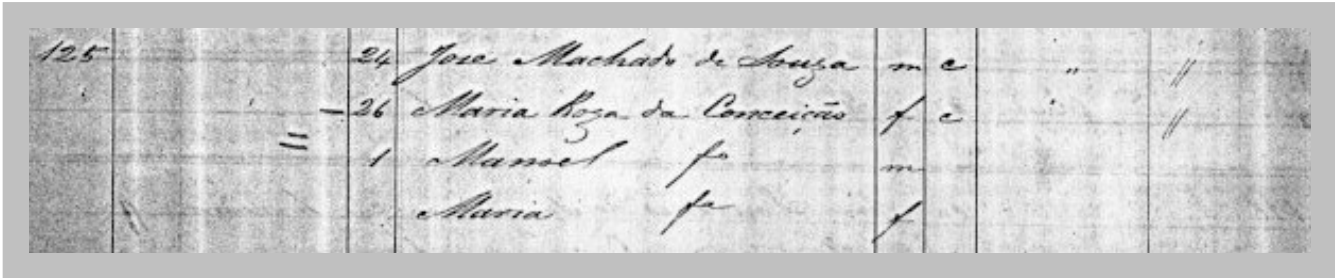 125 24 Jose Machado de Souza m c " "
= 26 Maria Roza da Conceição f c "
1 Manoel fo m
Maria fa f